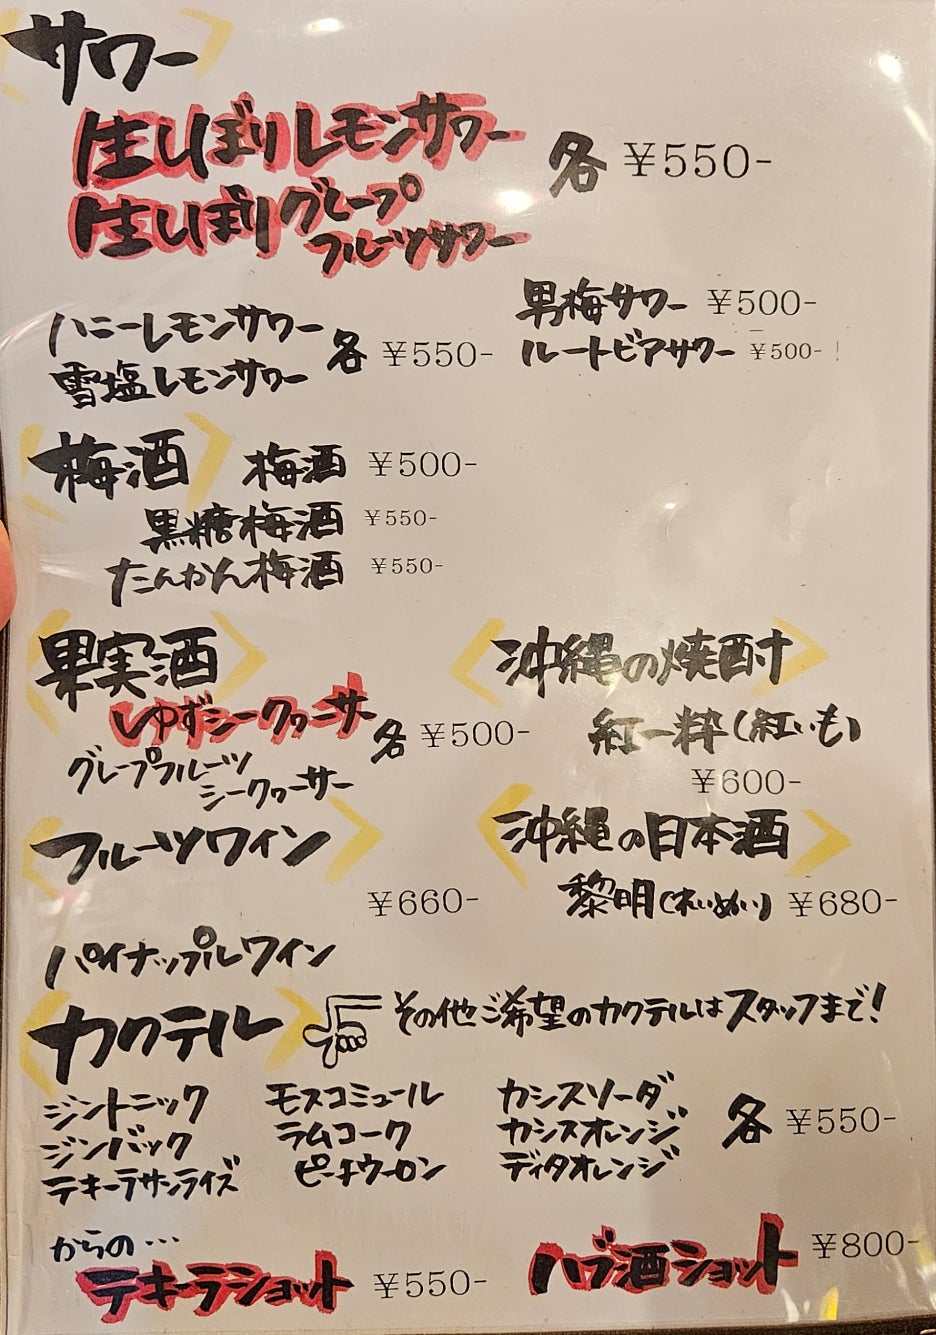 サワー
生しぼりレモンサワー
生しぼりグレープ
フルーツサワー
各 ¥550-
ハニーレモンサワー
雪塩レモンサワー
各 ¥550-
男梅サワー ¥500-
ルートビアサワー ¥500-
梅酒
梅酒 ¥500-
黒糖梅酒 ¥550-
たんかん梅酒 ¥550-
果実酒
ゆずシークヮーサー
グレープフルーツ
シークヮーサー
各 ¥500-
沖縄の焼酎
紅一粋(紅いも)
¥600-
フルーツワイン
¥660-
パイナップルワイン
沖縄の日本酒
黎明(れいめい) ¥680-
カクテル
その他ご希望のカクテルはスタッフまで!
ジントニック
ジンバック
テキーラサンライズ
モスコミュール
ラムコーク
ピーチウーロン
カシスソーダ
カシスオレンジ
ディタオレンジ
各 ¥550-
からの…
テキーラショット ¥550-
ハブ酒ショット ¥800-